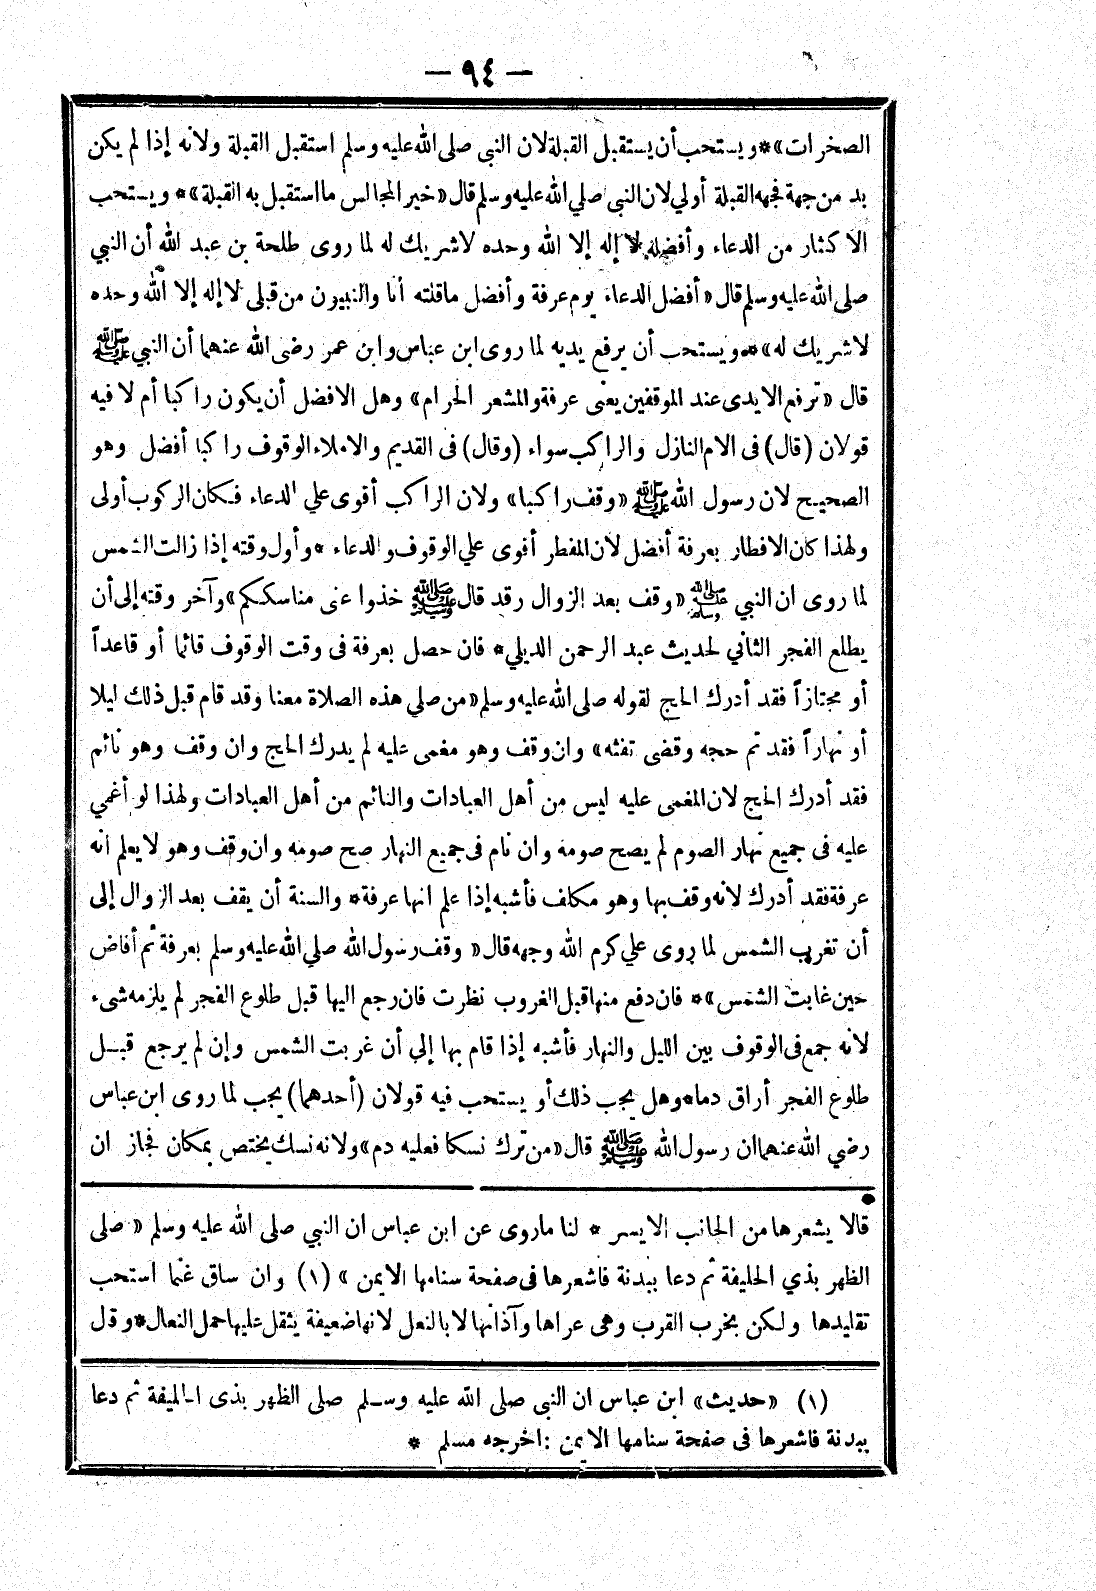 — ٩٤ —
الصخرات» * ويستحب أن يستقبل القبلة لان النبى صلى الله عليه وسلم استقبل القبلة ولانه إذا لم يكن
بد من جهة فجهه القبلة أولي لان النبى صلي الله عليه وسلم قال «خير المجالس ما استقبل به القبلة» * ويستحب
الاكثار من الدعاء وأفضله لا إله إلا الله وحده لاشريك له لما روى طلحة بن عبد الله أن النبي
صلى الله عليه وسلم قال «أفضل الدعاء يوم عرفة وأفضل ماقلته أنا والنبيون من قبلى لا إله إلا الله وحده
لاشريك له» * ويستحب أن يرفع يديه لما روى ابن عباس وابن عمر رضى الله عنهما أن النبي ﷺ
قال «ترفع الايدى عند الموقفين يعنى عرفة والمشعر الحرام» وهل الافضل أن يكون راكبا أم لا فيه
قولان (قال) فى الام النازل والراكب سواء (وقال) فى القديم والاملاء الوقوف راكبا أفضل وهو
الصحيح لان رسول الله ﷺ «وقف راكبا» ولان الراكب أقوى علي الدعاء فكان الركوب أولى
ولهذا كان الافطار بعرفة أفضل لان المفطر أقوى علي الوقوف والدعاء * وأول وقته إذا زالت الشمس
لما روى ان النبي ﷺ «وقف بعد الزوال رقد قال ﷺ خذوا عنى مناسككم» وآخر وقته إلى أن
يطلع الفجر الثاني لحديث عبد الرحمن الديلي * فان حصل بعرفة فى وقت الوقوف قائما أو قاعداً
أو مجتازاً فقد أدرك الحج لقوله صلى الله عليه وسلم «من صلي هذه الصلاة معنا وقد قام قبل ذلك ليلا
أو نهاراً فقد تم حجه وقضى تفثه» وان وقف وهو مغمى عليه لم يدرك الحج وان وقف وهو نائم
فقد أدرك الحج لان المغمى عليه ليس من أهل العبادات والنائم من أهل العبادات ولهذا لو أغمي
عليه فى جميع نهار الصوم لم يصح صومه وان نام فى جميع النهار صح صومه وان وقف وهو لايعلم انه
عرفة فقد أدرك لانه وقف بها وهو مكلف فأشبه إذا علم انها عرفة * والسنة أن يقف بعد الزوال إلى
أن تغرب الشمس لما روى علي كرم الله وجهه قال «وقف رسول الله صلي الله عليه وسلم بعرفة ثم أفاض
حين غابت الشمس» * فان دفع منها قبل الغروب نظرت فان رجع اليها قبل طلوع الفجر لم يلزمه شىء
لانه جمع فى الوقوف بين الليل والنهار فأشبه إذا قام بها إلي أن غربت الشمس وإن لم يرجع قبل
طلوع الفجر أراق دما * وهل يجب ذلك أو يستحب فيه قولان (أحدهما) يجب لما روى ابن عباس
رضي الله عنهما ان رسول الله ﷺ قال «من ترك نسكا فعليه دم» ولانه نسك يختص بمكان فجاز ان
قالا يشعرها من الجانب الايسر * لنا ماروى عن ابن عباس ان النبي صلى الله عليه وسلم «صلى
الظهر بذي الحليفة ثم دعا ببدنة فاشعرها فى صفحة سنامها الايمن» (١) وان ساق غنما استحب
تقليدها ولكن بخرب القرب وهى عراها وآذانها لا بالنعل لانها ضعيفة يثقل عليها حمل النعال * وقل
(١) «حديث» ابن عباس ان النبى صلى الله عليه وسلم صلى الظهر بذى الحليفة ثم دعا
ببدنة فاشعرها فى صفحة سنامها الايمن : اخرجه مسلم *